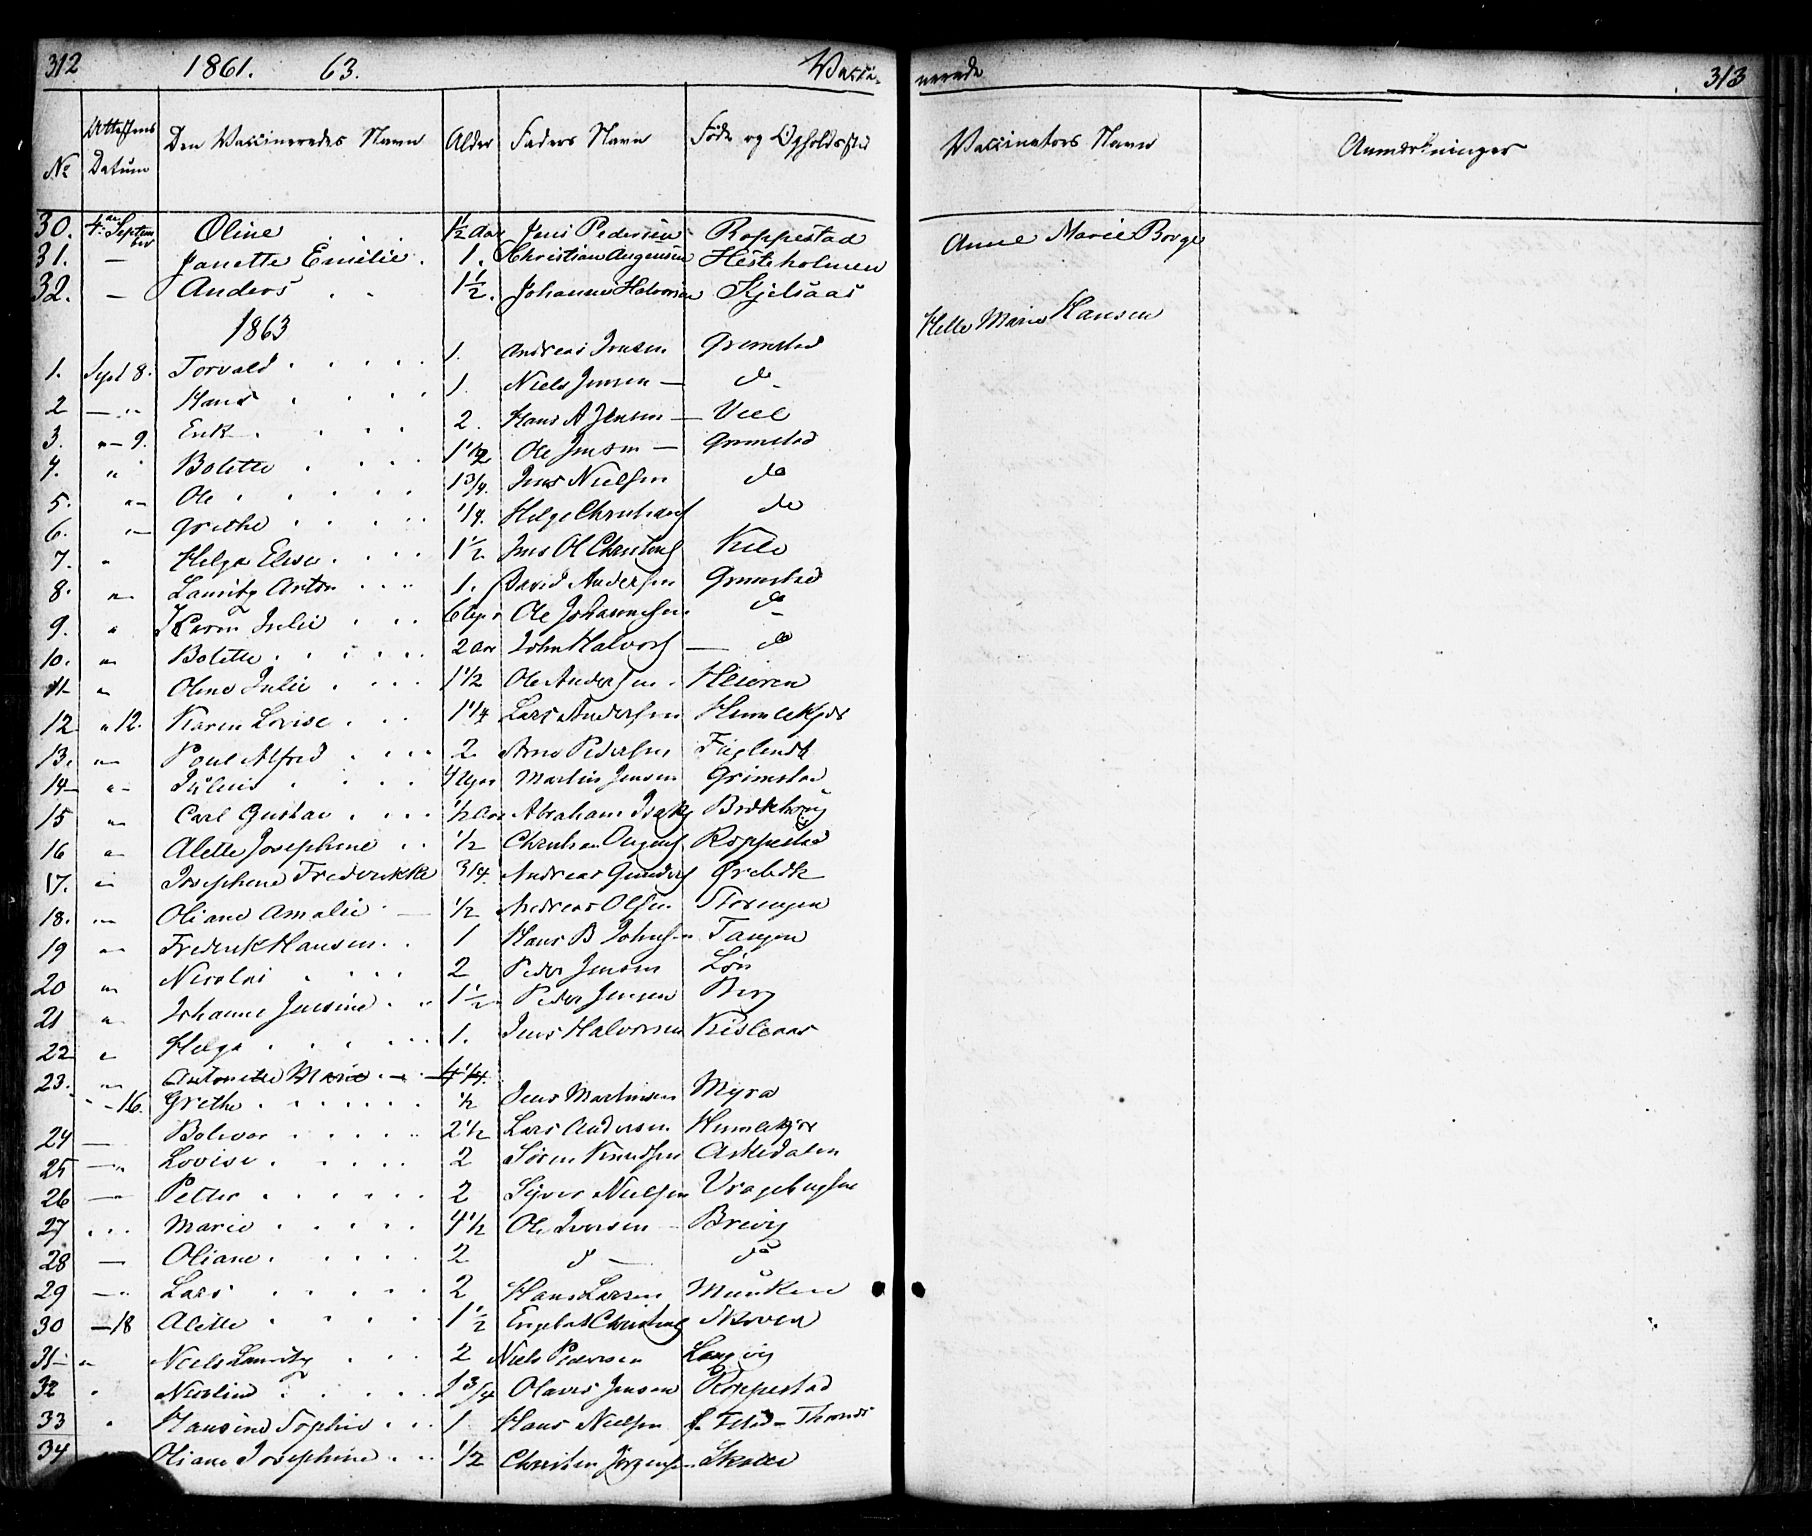 312 1861. 63. Vacci- nerede 313
No Attestens Datum Den Vaccineredes Navn Alder Faders Navn Føde og Opholdssted Vaccinators Navn Anmærkninger
30. 4de September Oline ½ Aar Jens Pedersen Roppestad Anne Marie Borge
31. — Janette Emilie . 1. Christian Augensen Hesteholmen
32. — Anders . . 1½. Johannes Halvorsen Kjelsaas
1863 Helle Marie Hansen
1. Sept 8. Torvald . . . . 1. Andreas Jensen Grimstad
2 — " Hans . . . . 1. Niels Jensen — do
3. " — 9. Erik . . . . 2. Hans A Jensen — Viel
4. " Bolette . . . . 1½ Ole Jensen — Grimstad
5. " Ole . . . . . 1¾. Jens Nielsen do
6. " Grethe . . . . . ¼. Helge Christians do
7. " Helga Elise . . . 1½ Jens Ol Christens
8. " Lauritz Anton . . . 1. David Andersen Grimstad
9. " Karen Julie . . . 6 Uger Ole Johannesen do
10. " Bolette . . . . . 2 Aar John Halvors — do
11 " Oline Julie . . . . 1½ Ole Andersen . Heieren
12 " 12. Karen Lovise . . . 1¼ Lars Andersen Humlekjær
13. " Poul Alfred . . . . 2 Arne Pedersen Fuglenedt
14 " Julius . . . . 4 Uger Martin Jensen Grimstad
15 " Carl Gustav . . . . ½ Aar Abraham Isaks
16 " Alette Josephine . . ½ Christian Augens Roppestad
17. " Josephine Frederikke ¾. Andreas Gunders Ørebæk
18. " Oliane Amalie — ½ Andreas Olsen Storengen
19 " Frederik Hansen . . 1 Hans B Johnsen Tangen
20 " Nicolai . . . . 2 Peder Jensen Løv
21 " Johanne Jensine . . 1½ Peder Jensen Berg
22 " Helga . . . . . . 1. Jens Halvorsen
23. " Antonette Marie . — . 4¼.
" — 16. Grethe . . . . . . ½ Jens Martinsen Myra
24 — Bolevar . . . . . 2½ Lars Andersen Humlekjær
25 — " Lovise . . . . . 2 Søren Knudsen Askedalen
26 — " Petter . . . . . . 2 Syver Nielsen
27 . . . Marie . . . . . . 4½ Ole Iversen — Brevig
28 — Oliane . . . . . 2 d — do
29 — " Lars . . . . . . 2 Hans Larsen Munken
30 — 18 Alette . . . . . 1½ Engebret Christens Skoven
31 — " Niels Lauritz . . . 2 Niels Pedersen Langvig
32 " Nicoline . . . . . 1¾ Olaves Jensen Roppestad
33 " Hansine Sophie . . . 1 Hans Nielsen
34 Oliane Josephine . . . ½ Christen Jörgensen Skotte